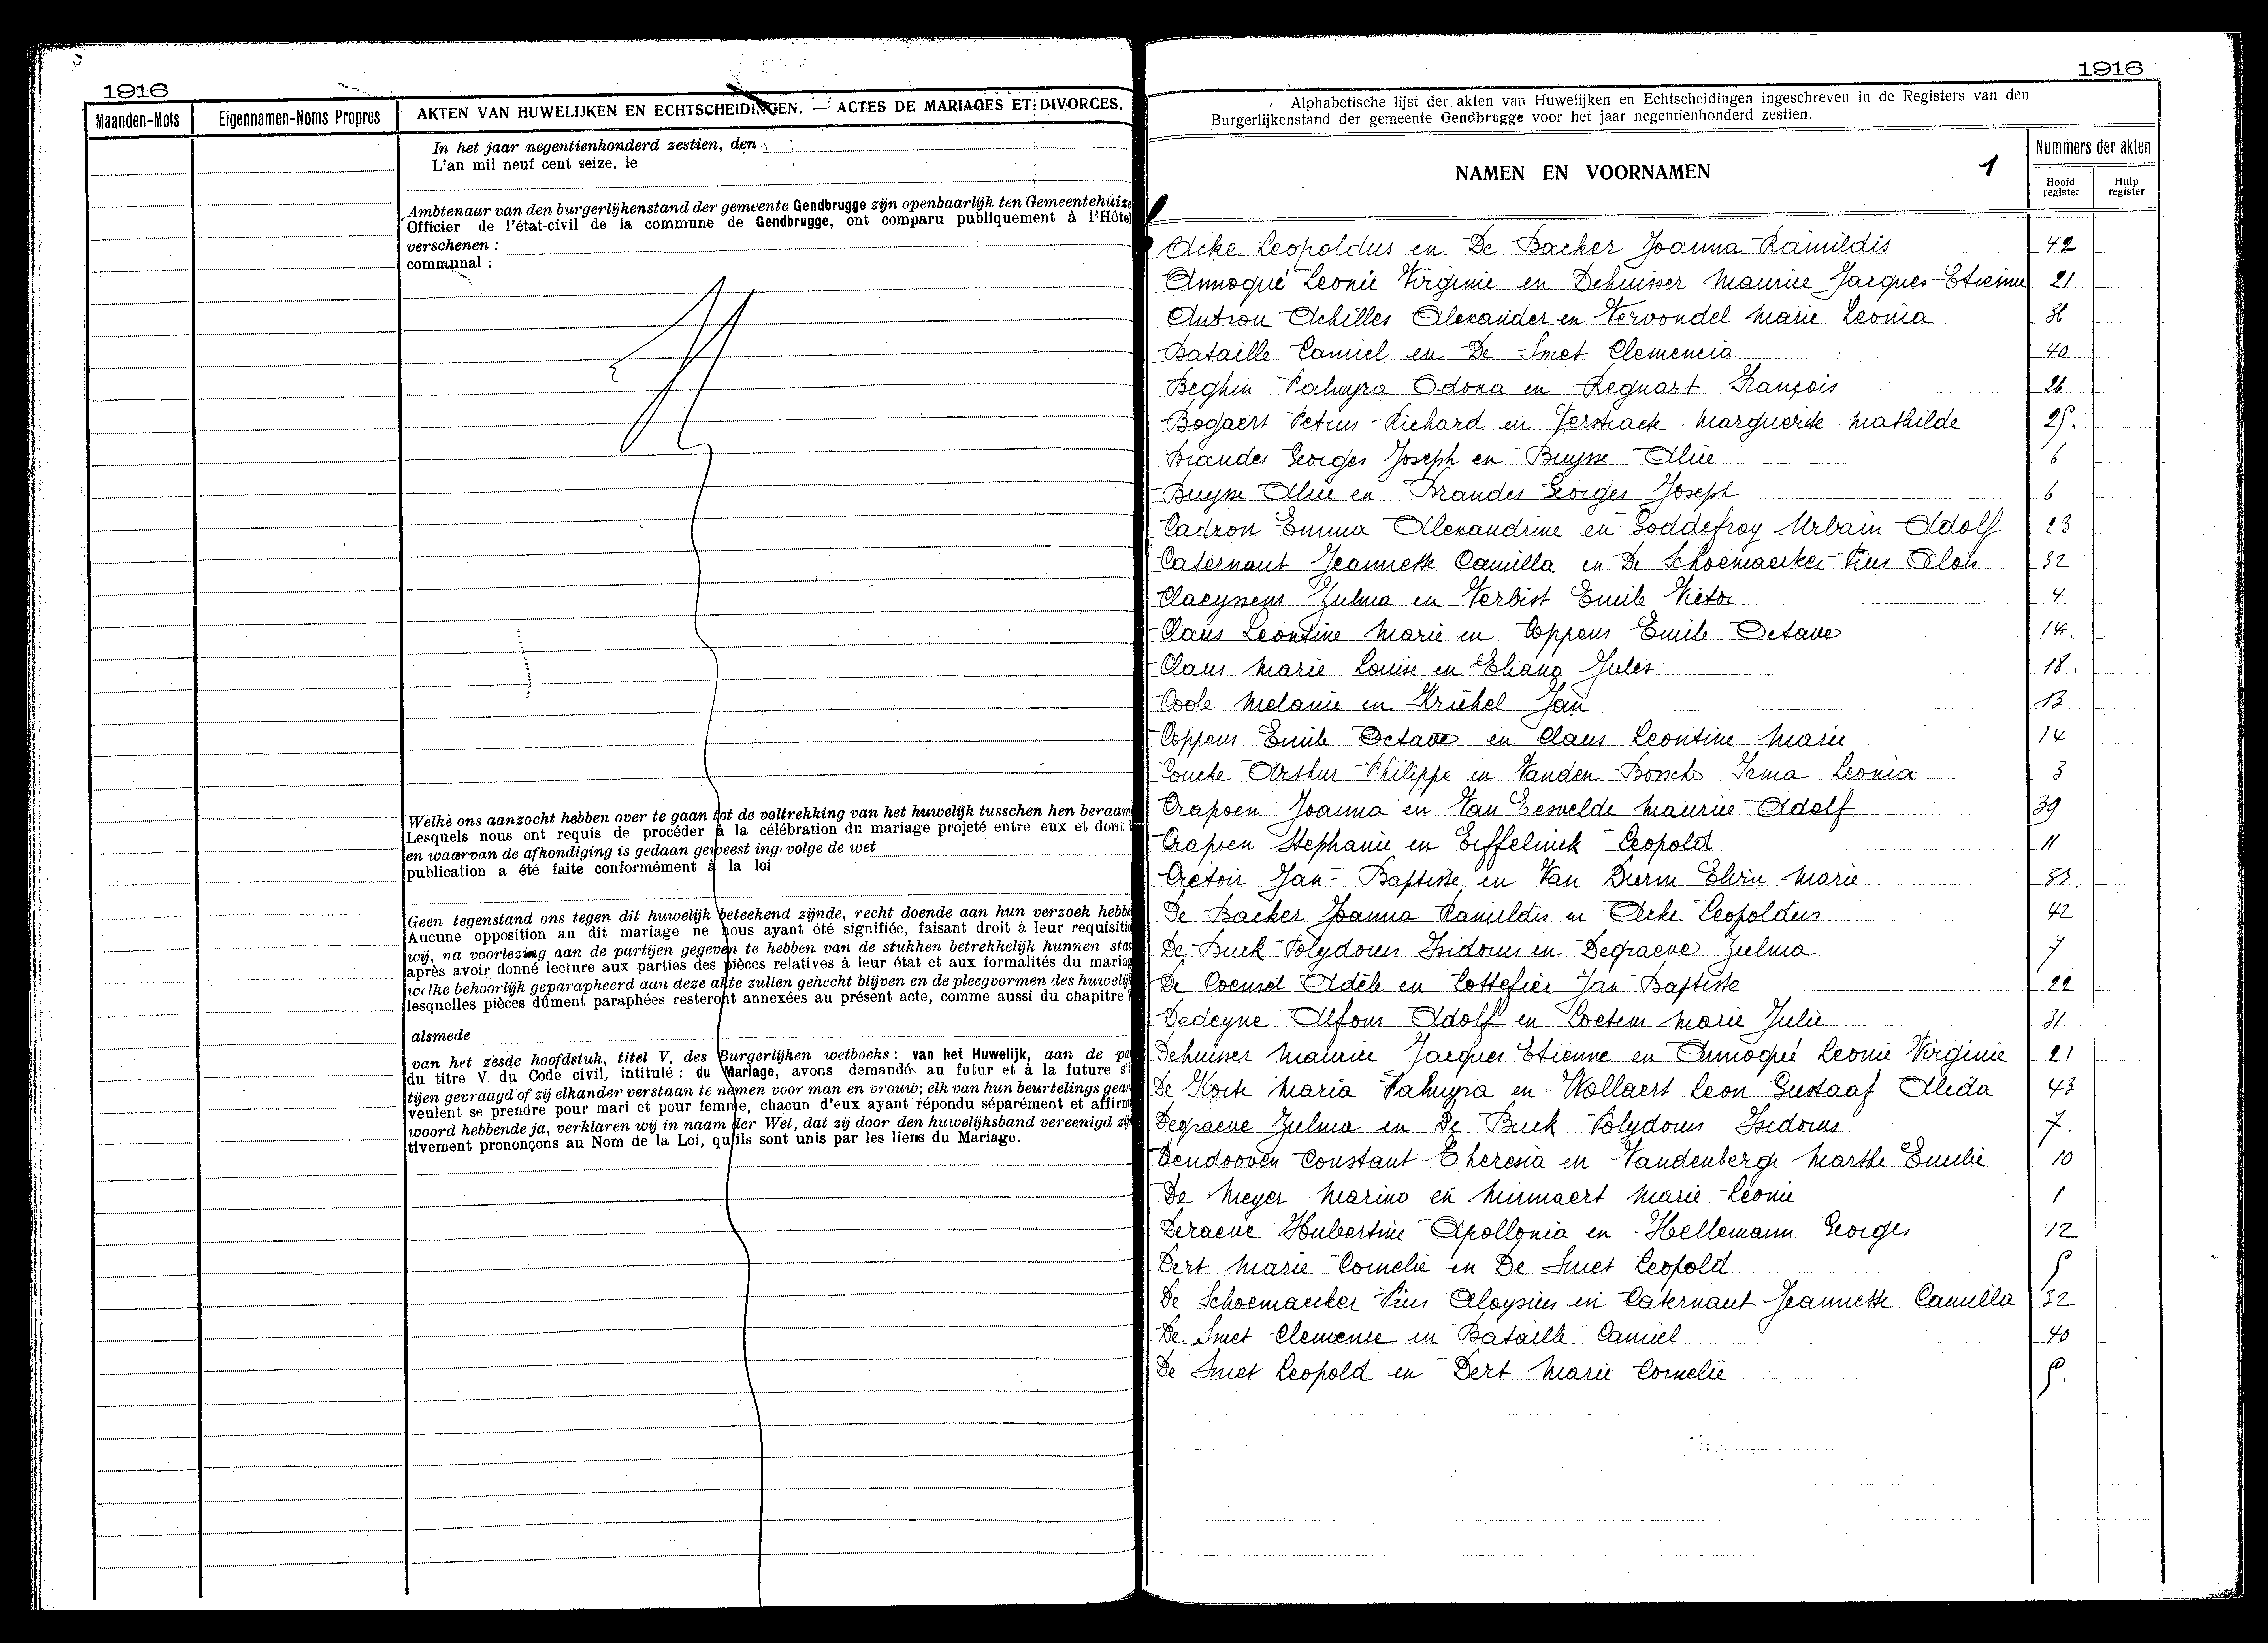 1916
Maanden-Mois
Eigennamen-Noms Propres
AKTEN VAN HUWELIJKEN EN ECHTSCHEIDINGEN. — ACTES DE MARIAGES ET DIVORCES.
In het jaar negentienhonderd zestien, den
L'an mil neuf cent seize, le
Ambtenaar van den burgerlijkenstand der gemeente Gendbrugge zijn openbaarlijk ten Gemeentehuize
Officier de l'état-civil de la commune de Gendbrugge, ont comparu publiquement à l'Hôtel
verschenen :
communal :
Welke ons aanzocht hebben over te gaan tot de voltrekking van het huwelijk tusschen hen beraam
Lesquels nous ont requis de procéder à la célébration du mariage projeté entre eux et dont
en waarvan de afkondiging is gedaan geweest ing. volge de wet
publication a été faite conformément à la loi
Geen tegenstand ons tegen dit huwelijk beteekend zijnde, recht doende aan hun verzoek hebbe
Aucune opposition au dit mariage ne nous ayant été signifiée, faisant droit à leur requisitio
wij, na voorlezing aan de partijen gegeven te hebben van de stukken betrekkelijk hunnen sta
après avoir donné lecture aux parties des pièces relatives à leur état et aux formalités du mariag
welke behoorlijk geparapheerd aan deze akte zullen gehecht blijven en de pleegvormen des huwelijk
lesquelles pièces dûment paraphées resteront annexées au présent acte, comme aussi du chapitre
alsmede
van het zesde hoofdstuk, titel V, des Burgerlijken wetboeks : van het Huwelijk, aan de pa
du titre V du Code civil, intitulé : du Mariage, avons demandé au futur et à la future s'i
tijen gevraagd of zij elkander verstaan te nemen voor man en vrouw; elk van hun beurtelings gean
veulent se prendre pour mari et pour femme, chacun d'eux ayant répondu séparément et affirm
woord hebbende ja, verklaren wij in naam der Wet, dat zij door den huwelijksband vereenigd zij
tivement prononçons au Nom de la Loi, qu'ils sont unis par les liens du Mariage.
1916
Alphabetische lijst der akten van Huwelijken en Echtscheidingen ingeschreven in de Registers van den
Burgerlijkenstand der gemeente Gendbrugge voor het jaar negentienhonderd zestien.
NAMEN EN VOORNAMEN 1
Nummers der akten
Hoofd register
Hulp register
Acke Leopoldus en De Backer Joanna Ramildis 42
Annoqué Leonie Virginie en Dehuisser Maurice Jacques-Etienne 21
Antron Achilles Alexander en Vervondel Marie Leonia 36
Bataille Camiel en De Smet Clemencia 40
Beghin Palmyra Odona en Regnart François 26
Bogaert Petrus Richard en Verstraete Marguerite Mathilde 25.
Brandes Georges Joseph en Buysse Alice 6
Buysse Alice en Brandes Georges Joseph 6
Cadron Emma Alexandrine en Goddefroy Urbain Adolf 23
Caternaut Jeannette Camilla en De Schoemaecker Pius Alois 32
Claeyssens Zulma en Verbist Emile Victor 4
Claus Leontine Marie en Coppens Emile Octave 14.
Claus Marie Louise en Ehang Jules 18.
Coole Melanie en Krichel Jan 13
Coppens Emile Octave en Claus Leontine Marie 14
Coucke Arthur Philippe en Vanden Bossche Irma Leonia 3
Crapoen Joanna en Van Eesvelde Maurice Adolf 39
Crapoen Stephanie en Eiffelinck Leopold 11
Cretoir Jan-Baptiste en Van Durm Elvire Marie 33.
De Backer Joanna Ramildis en Acke Leopoldus 42
De Buck Polydorus Isidorus en Degraeve Zulma 7
De Coensel Adèle en Cottefier Jan Baptiste 22
Dedeyne Alfons Adolf en Coetens Marie Julie 31
Dehuisser Maurice Jacques Etienne en Annoqué Leonie Virginie 21
De Korte Maria Palmyra en Wollaert Leon Gustaaf Alida 43
Degraeve Zulma en De Buck Polydorus Isidorus 7.
Dendooven Constant Theresia en Vandenberge Marthe Emilie 10
De Meyer Marino en Minnaert Marie Leonie 1
Deraeve Hubertine Apollonia en Hellemann Georges 12
Dert Marie Cornelie en De Smet Leopold 5
De Schoemaecker Pius Aloysius en Caternaut Jeannette Camilla 32
De Smet Clemence en Bataille Camiel 40
De Smet Leopold en Dert Marie Cornelie 5.